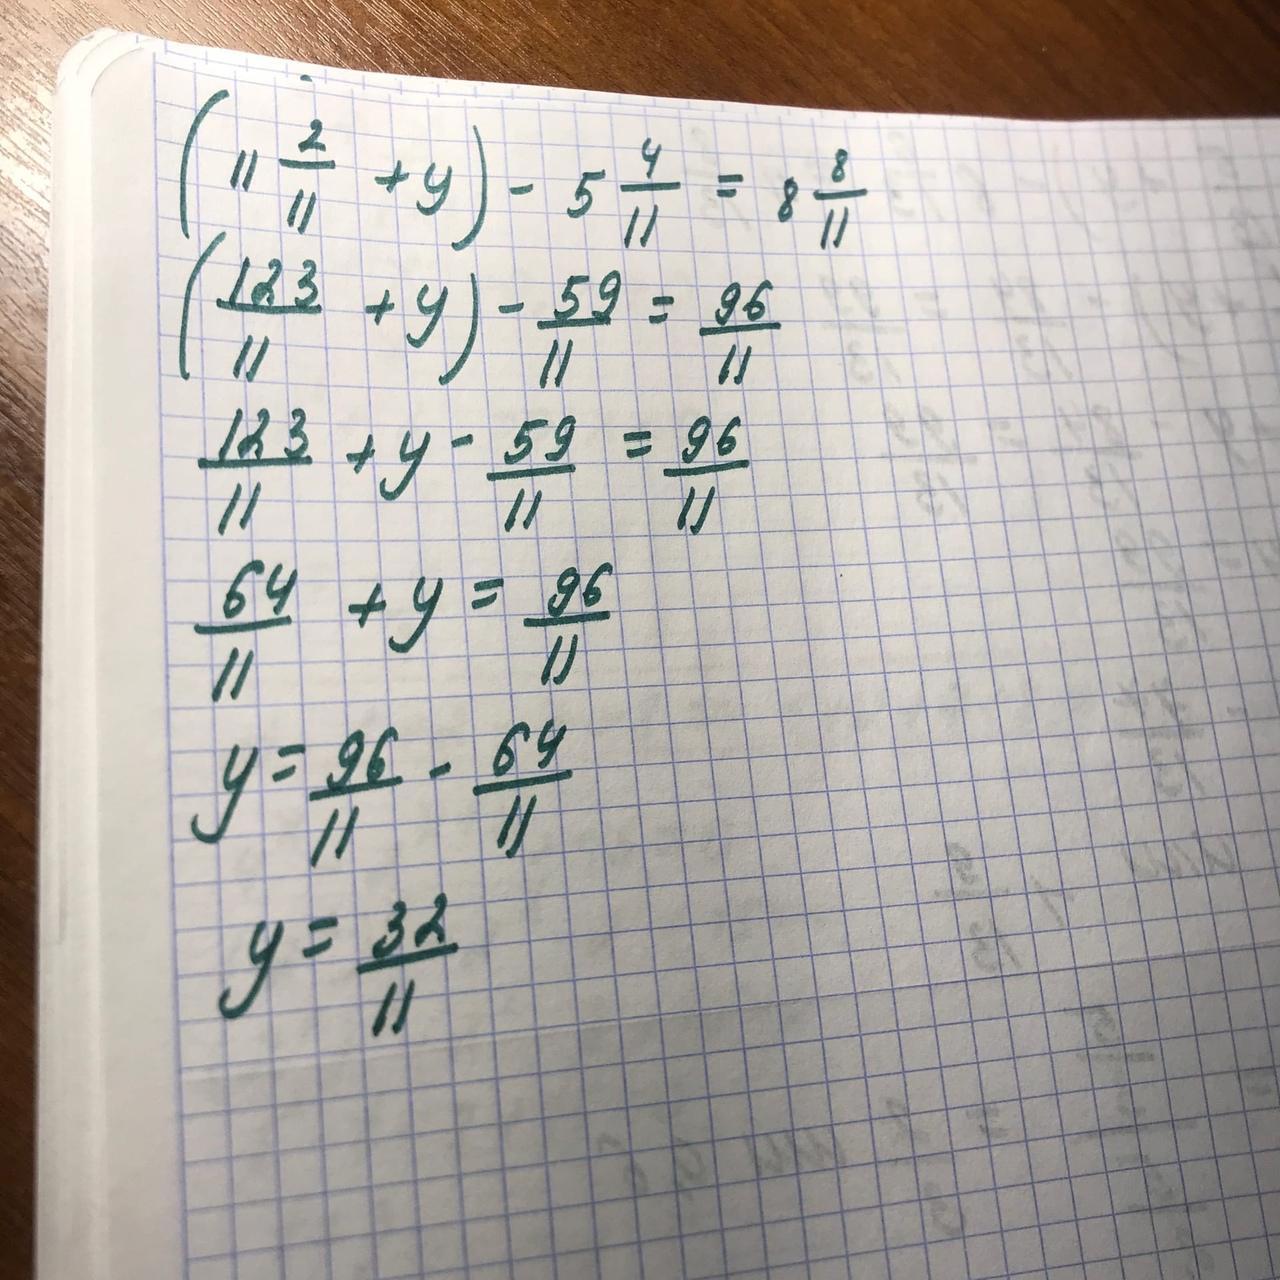 (11 2/11 + y) - 5 4/11 = 8 8/11
(123/11 + y) - 59/11 = 96/11
123/11 + y - 59/11 = 96/11
64/11 + y = 96/11
y = 96/11 - 64/11
y = 32/11